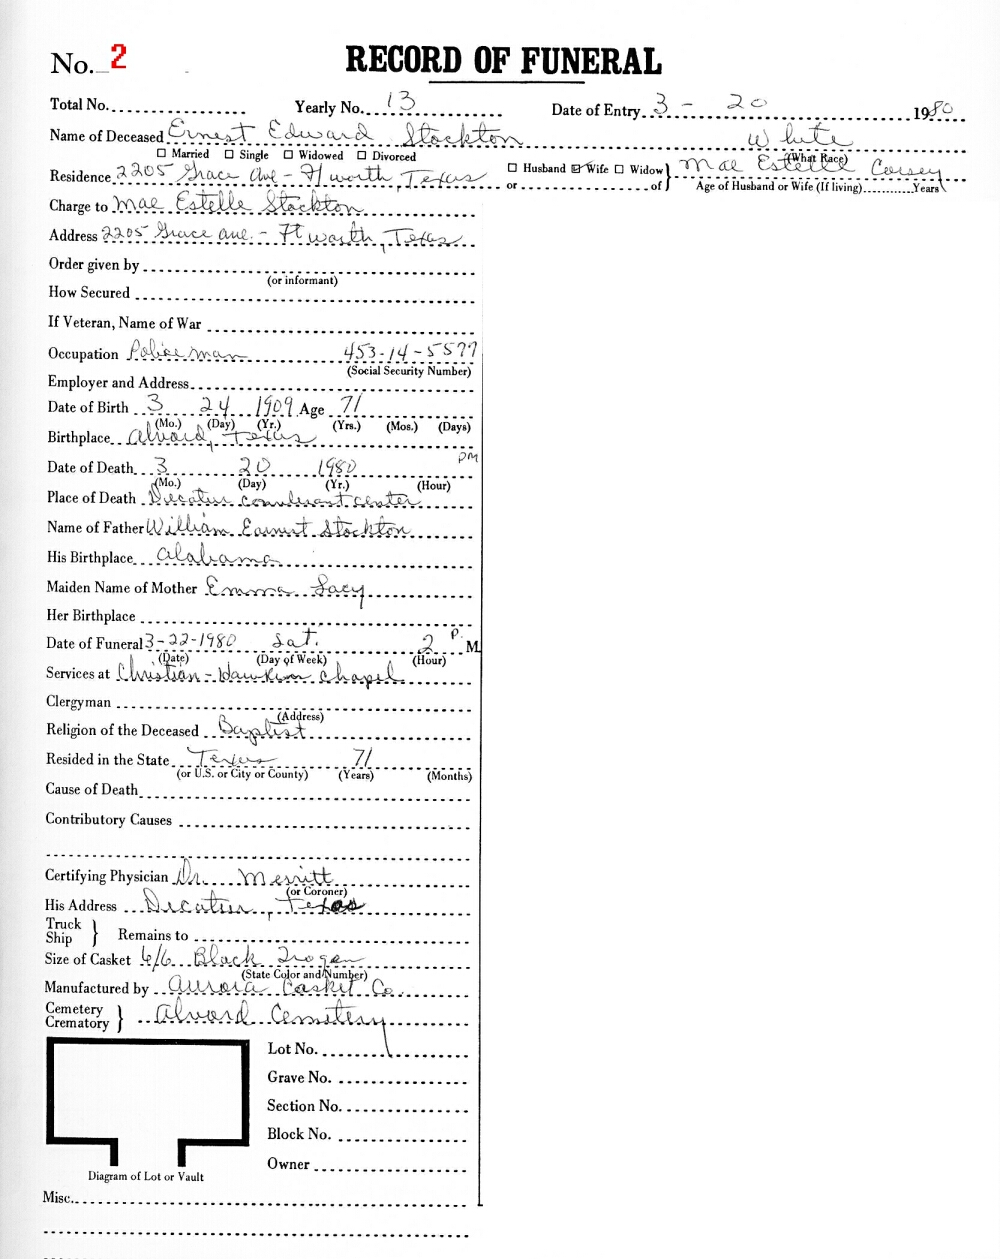 No. 2 RECORD OF FUNERAL
Total No. Yearly No. 13 Date of Entry 3 - 20 1980
Name of Deceased Ernest Edward Stockton White
☐ Married ☐ Single ☐ Widowed ☐ Divorced (What Race)
Residence 2205 Grace Ave - Ft Worth, Texas ☐ Husband ☑ Wife ☐ Widow or of } Mae Estelle
Age of Husband or Wife (If living) Years
Charge to Mae Estelle Stockton
Address 2205 Grace Ave. - Ft Worth, Texas
Order given by
(or informant)
How Secured
If Veteran, Name of War
Occupation Policeman 453-14-5577
(Social Security Number)
Employer and Address
Date of Birth 3 24 1909 Age 71
(Mo.) (Day) (Yr.) (Yrs.) (Mos.) (Days)
Birthplace Alvord, Texas
Date of Death 3 20 1980 PM
(Mo.) (Day) (Yr.) (Hour)
Place of Death Decatur center
Name of Father William Earnest Stockton
His Birthplace Alabama
Maiden Name of Mother Emma Lacy
Her Birthplace
Date of Funeral 3-22-1980 Sat. 2 P. M.
(Date) (Day of Week) (Hour)
Services at Christian-Hawkins Chapel
Clergyman
(Address)
Religion of the Deceased Baptist
Resided in the State Texas 71
(or U.S. or City or County) (Years) (Months)
Cause of Death
Contributory Causes
Certifying Physician Dr. Merritt
(or Coroner)
His Address Decatur, Texas
Truck
Ship } Remains to
Size of Casket 6/6 Black
(State Color and Number)
Manufactured by Aurora Casket Co.
Cemetery
Crematory } Alvord Cemetery
Lot No.
Grave No.
Section No.
Block No.
Owner
Diagram of Lot or Vault
Misc.